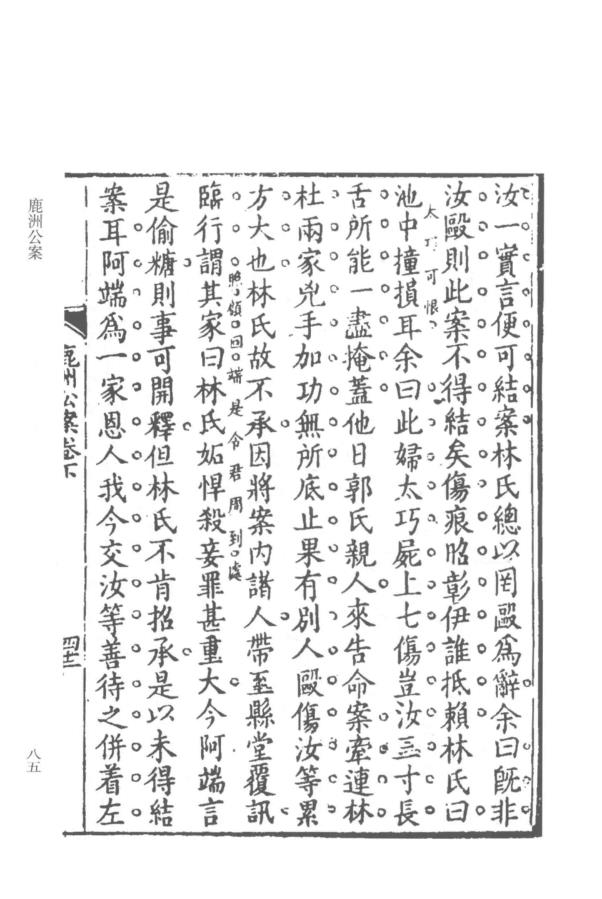 汝一實言便可結案林氏總以罔毆為辭余曰旣非
汝毆則此案不得結矣傷痕昭彰伊誰抵賴林氏曰
太巧可恨
池中撞損耳余曰此婦太巧屍上七傷豈汝三寸長
舌所能一盡掩蓋他日郭氏親人來告命案牽連林
杜兩家兇手加功無所底止果有別人毆傷汝等累
方大也林氏故不承因將案內諸人帶至縣堂覆訊
照顧回端是令君周到處
臨行謂其家曰林氏妬悍殺妾罪甚重大今阿端言
是偷糖則事可開釋但林氏不肯招承是以未得結
案耳阿端為一家恩人我今交汝等善待之併着左
鹿洲公案卷下
四十三
鹿洲公案
八五